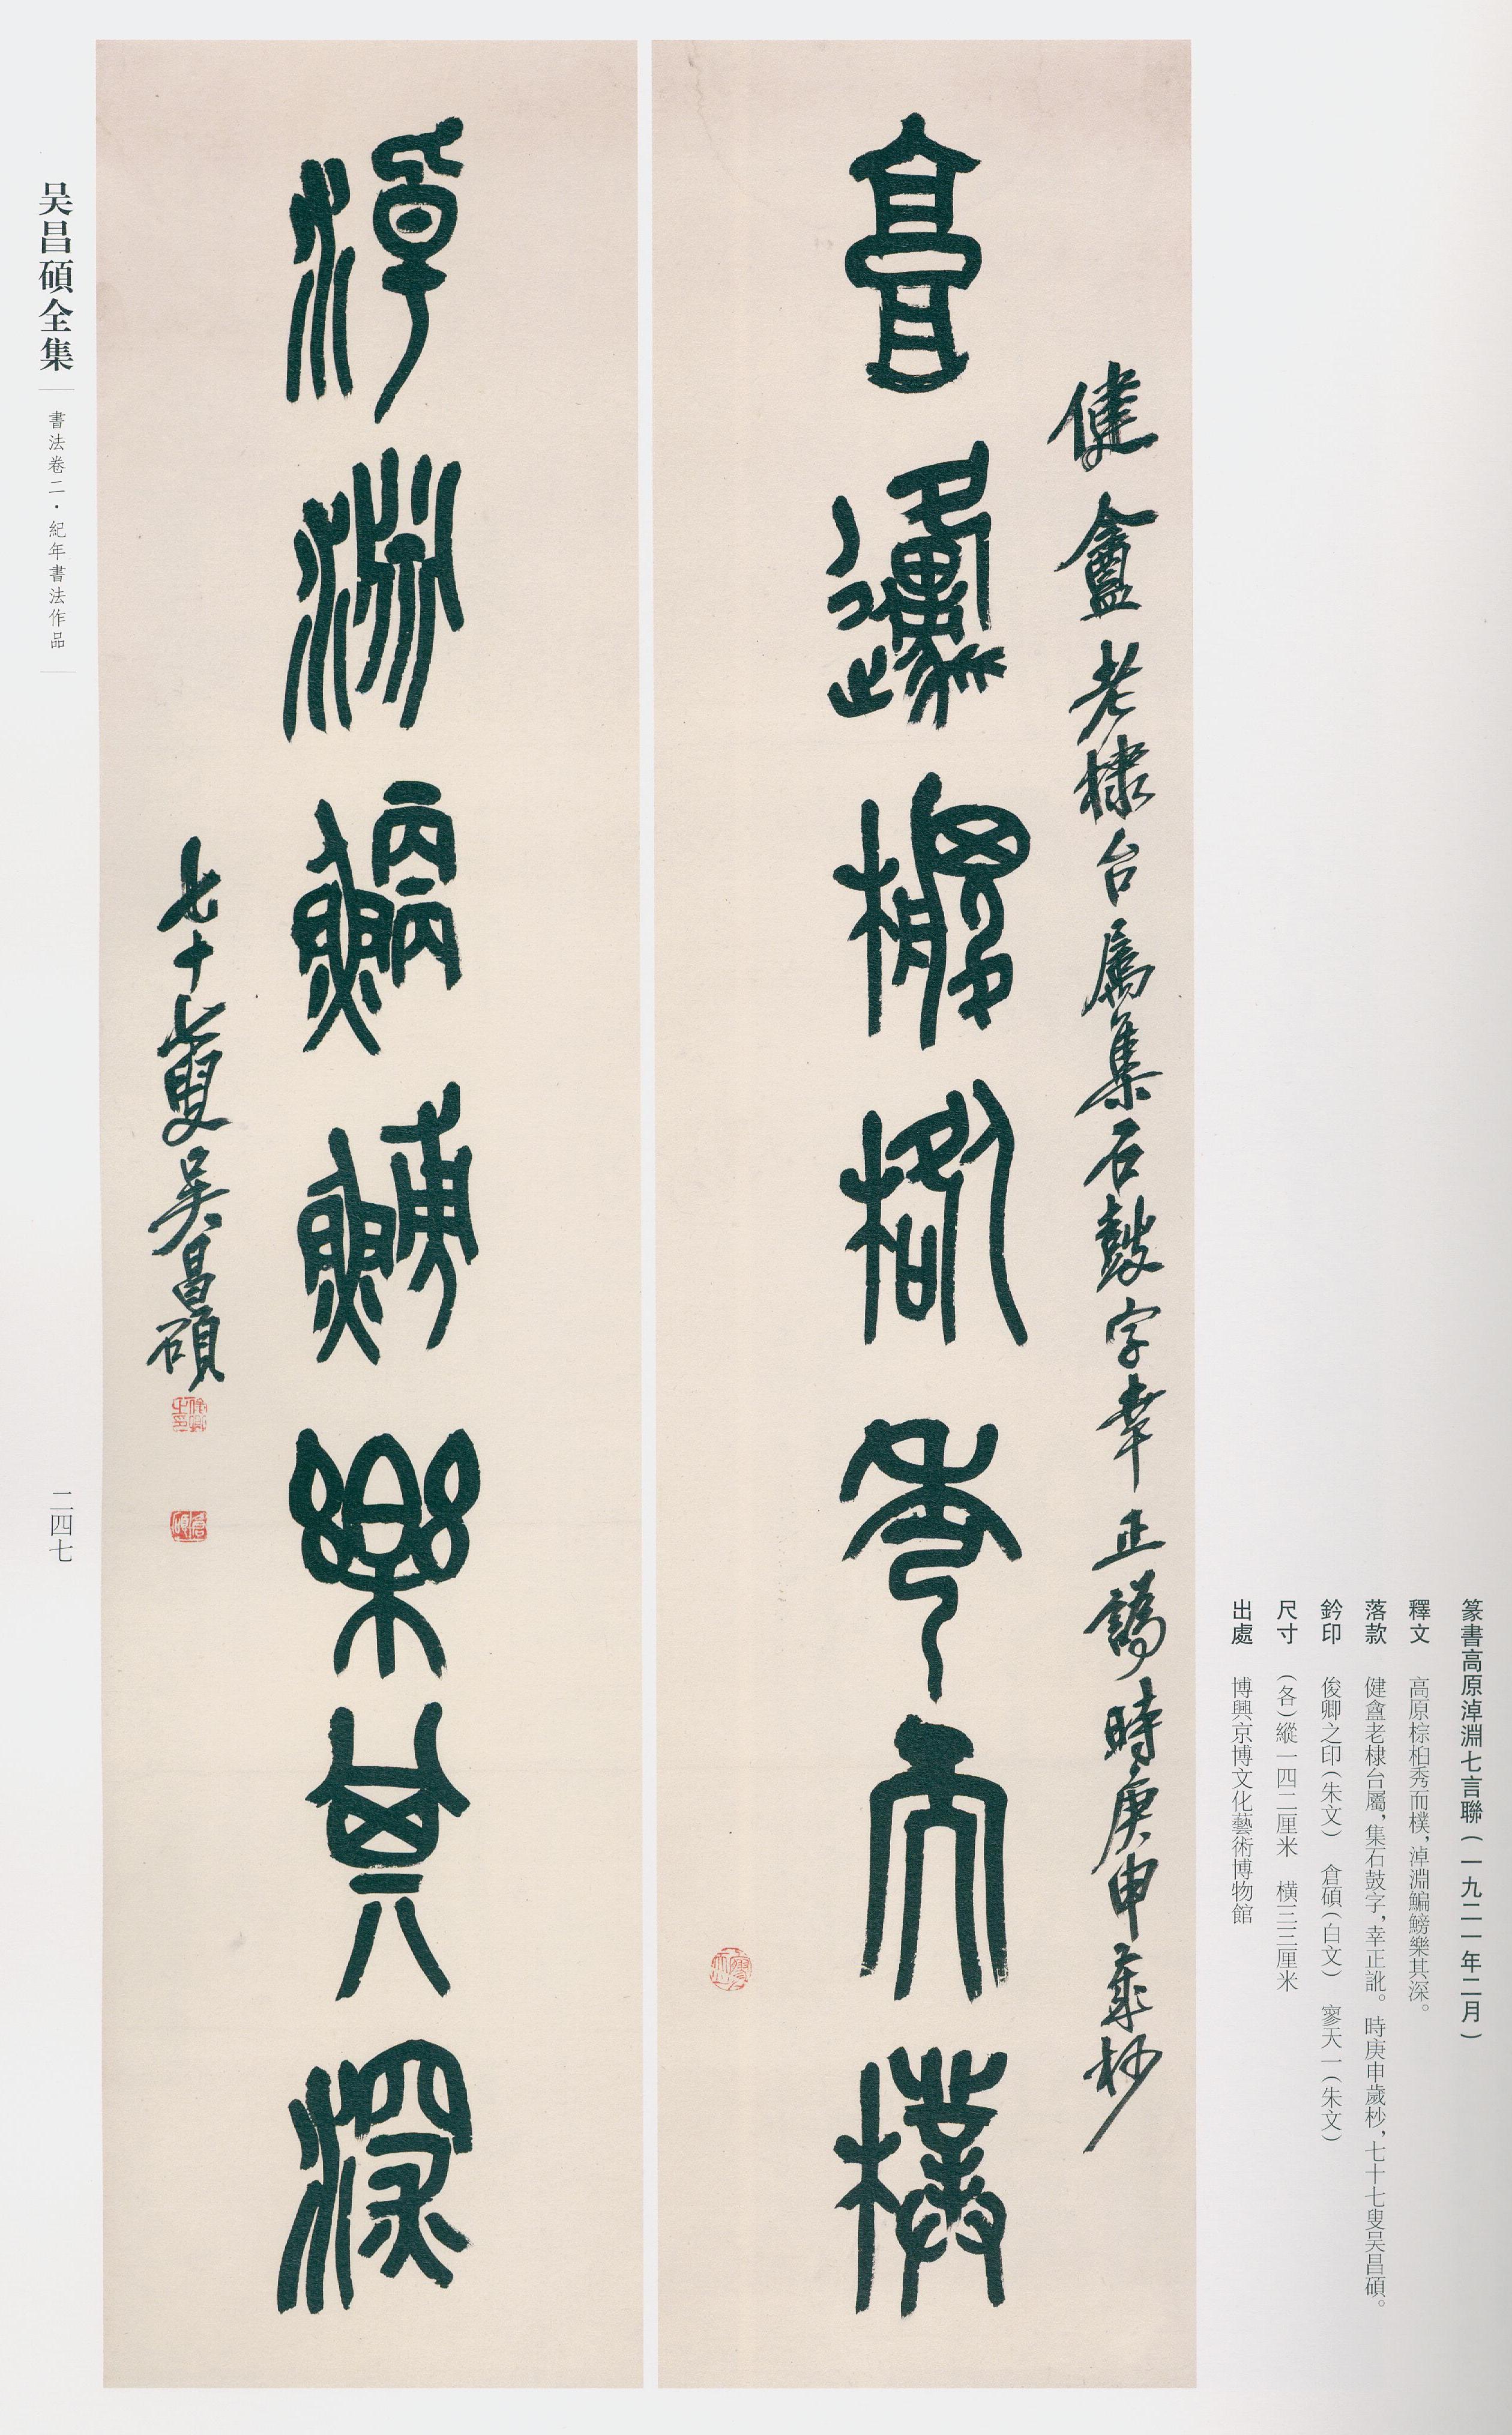 篆書高原淖淵七言聯（一九二一年二月）
釋文　高原棕柏秀而樸，淖淵鯿鰟樂其深。
落款　健盦老棣台屬，集石鼓字，幸正訛。時庚申歲杪，七十七叟吴昌碩。
鈐印　俊卿之印（朱文）　倉碩（白文）　寥天一（朱文）
尺寸　（各）縱一四二厘米　橫三三厘米
出處　博興京博文化藝術博物館
健盦老棣台屬集石鼓字幸正譌時庚申歲杪
高原棕柏秀而樸
淖淵鯿鰟樂其深
七十七叟吳昌碩
俊卿之印
倉碩
寥天一
吴昌碩全集
書法卷二·紀年書法作品
二四七